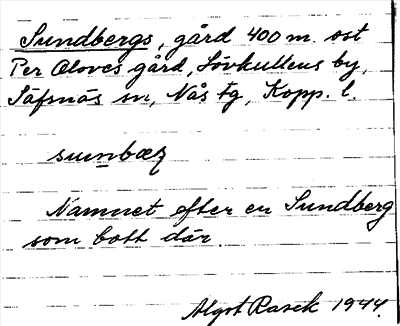 Sundbergs, gård 400 m. ost
Per Oloves gård, Lövkullens by,
Säfsnäs sn, Nås tg, Kopp. l.
sunbæʒ
Namnet efter en Sundberg
som bott där.
Algot Rasck 1944.